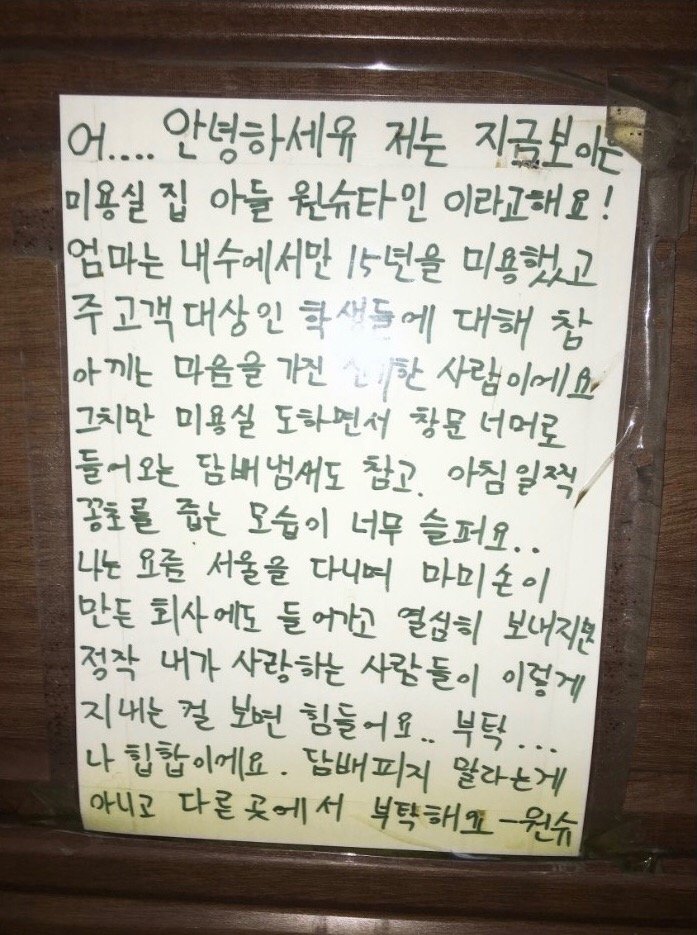 어.... 안녕하세유 저는 지금보이는
미용실 집 아들 원슈타인 이라고해요!
엄마는 내수에서만 15년을 미용했고
주고객대상인 학생들에 대해 참
아끼는 마음을 가진 한 사람이에요
그치만 미용실 도하면서 창문 너머로
들어오는 담배냄새도 참고. 아침일찍
꽁초를 줍는 모습이 너무 슬퍼요..
나는 요즘 서울을 다니며 마미손이
만든 회사에도 들어가고 열심히 보내지만
정작 내가 사랑하는 사람들이 이렇게
지내는 걸 보면 힘들어요.. 부탁...
나 힙합이에요. 담배피지 말라는게
아니고 다른곳에서 부탁해요 -원슈